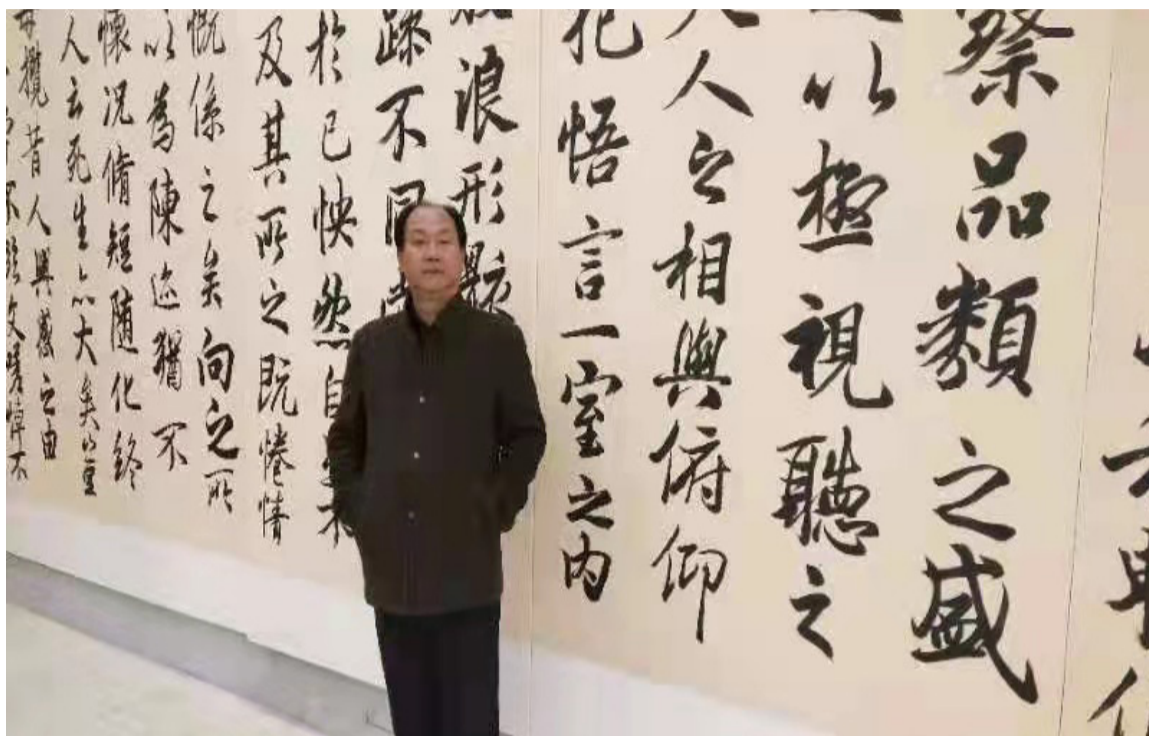 察品類之盛
以極視聽之
人之相與俯仰
悟言一室之内
浪形骸
不同當
於己快然自足不
及其所之既惓情
慨係之矣向之所
以為陳迹猶不
懷況脩短随化終
人云死生亦大矣豈
每攬昔人興感之由
不臨文嗟悼不